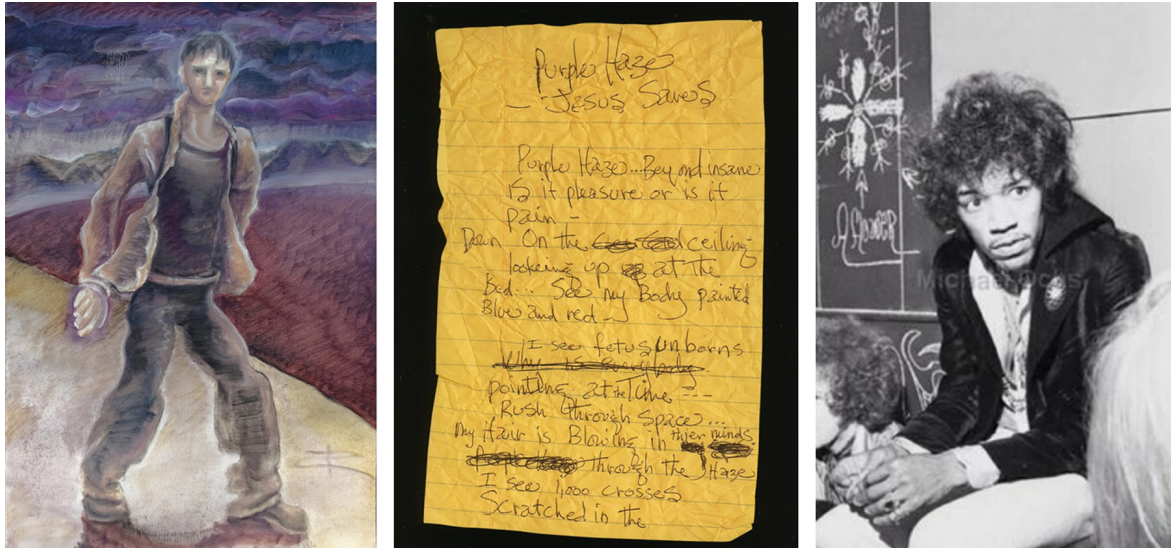 Purple Haze
— Jesus Saves
Purple Haze... Beyond insane
is it pleasure or is it
pain -
Down On the ceiling
lookeing up at the
Bed... See my Body painted
Blue and red -
I see fetus unborns
Why is everybody
pointing at the Time ---
Rush through space...
my Hair is Blowing in thier minds
through the Haze
I see 1,000 crosses
Scratched in the
A flower
Michael Ochs